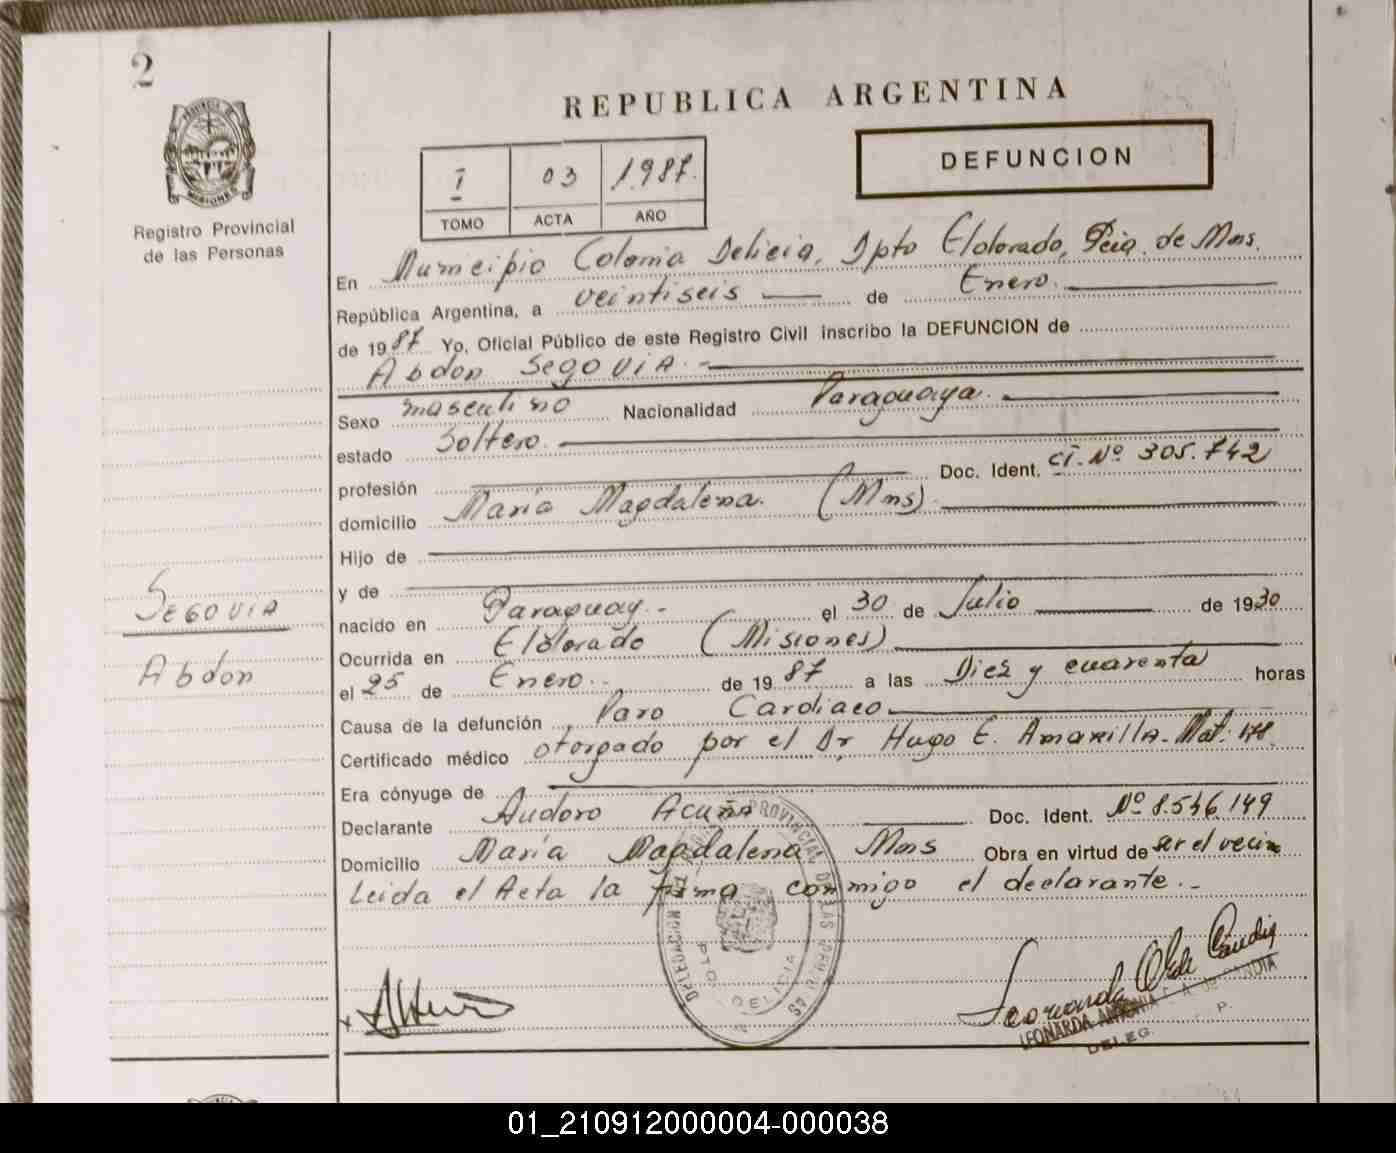 2
REPUBLICA ARGENTINA
Registro Provincial
de las Personas
I 03 1987.
TOMO ACTA AÑO
DEFUNCION
En Municipio Colonia Delicia, Dpto Eldorado, Pcia. de Mns.
República Argentina, a veintiseis de Enero.
de 1987 Yo, Oficial Público de este Registro Civil inscribo la DEFUNCION de
Abdon SEGOVIA.-
Sexo masculino Nacionalidad Paraguaya.
estado Soltero.
profesión Doc. Ident. CI. Nº 305.742
domicilio María Magdalena. (Mns)
Hijo de
y de
nacido en Paraguay.- el 30 de Julio de 1930
Ocurrida en Eldorado (Misiones)
el 25 de Enero.- de 1987 a las Diez y cuarenta horas
Causa de la defunción Paro Cardiaco
Certificado médico otorgado por el Dr, Hugo E. AMARILLA- Mat.
Era cónyuge de
Declarante Audoro Acuña Doc. Ident. Nº 8.546.149
Domicilio María Magdalena Mns Obra en virtud de ser el vecino
Leida el Acta la firma conmigo el declarante.-
SEGOVIA
Abdon
PROVINCIAL DE LAS
PTO. DELICIA
LEONARDA ANTONIA
DELEG.
01_210912000004-000038